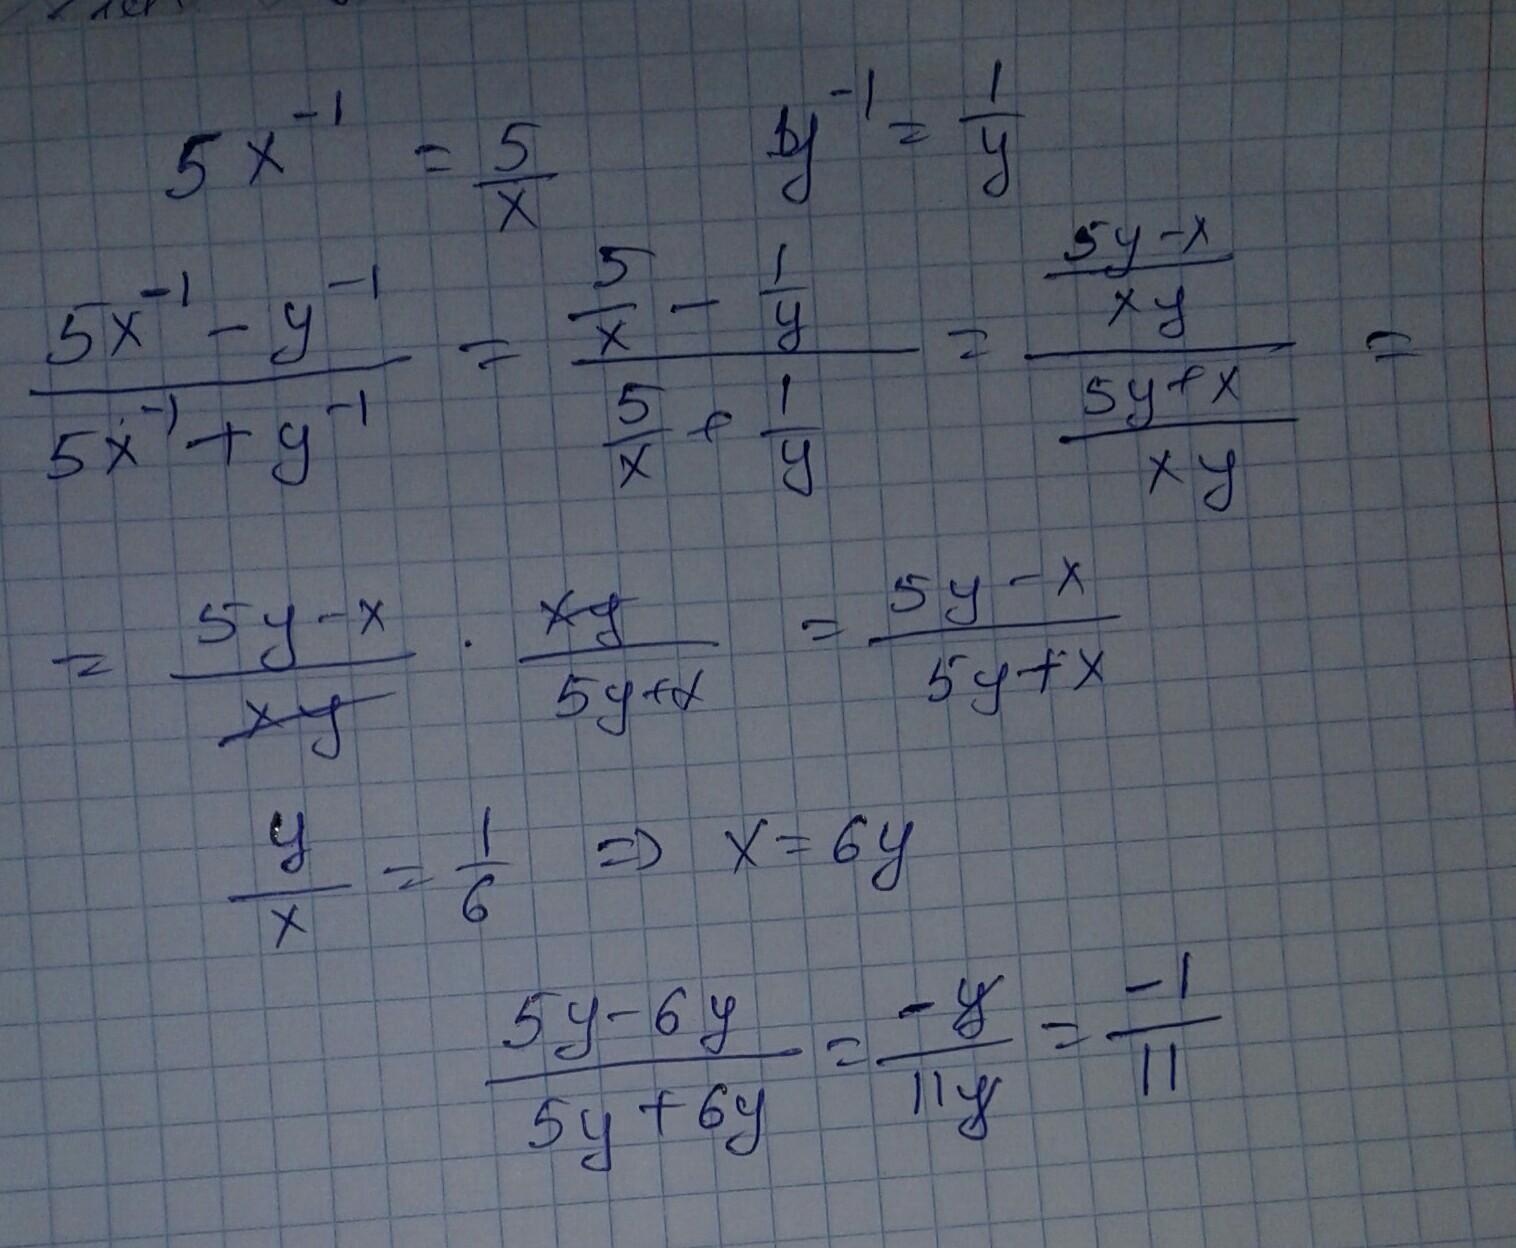 5x⁻¹ = 5/x   y⁻¹ = 1/y
(5x⁻¹ - y⁻¹)/(5x⁻¹ + y⁻¹) = (5/x - 1/y)/(5/x + 1/y) = ((5y-x)/(xy))/((5y+x)/(xy)) =
= (5y-x)/(xy) · (xy)/(5y+x) = (5y-x)/(5y+x)
y/x = 1/6 => x = 6y
(5y-6y)/(5y+6y) = (-y)/(11y) = (-1)/11